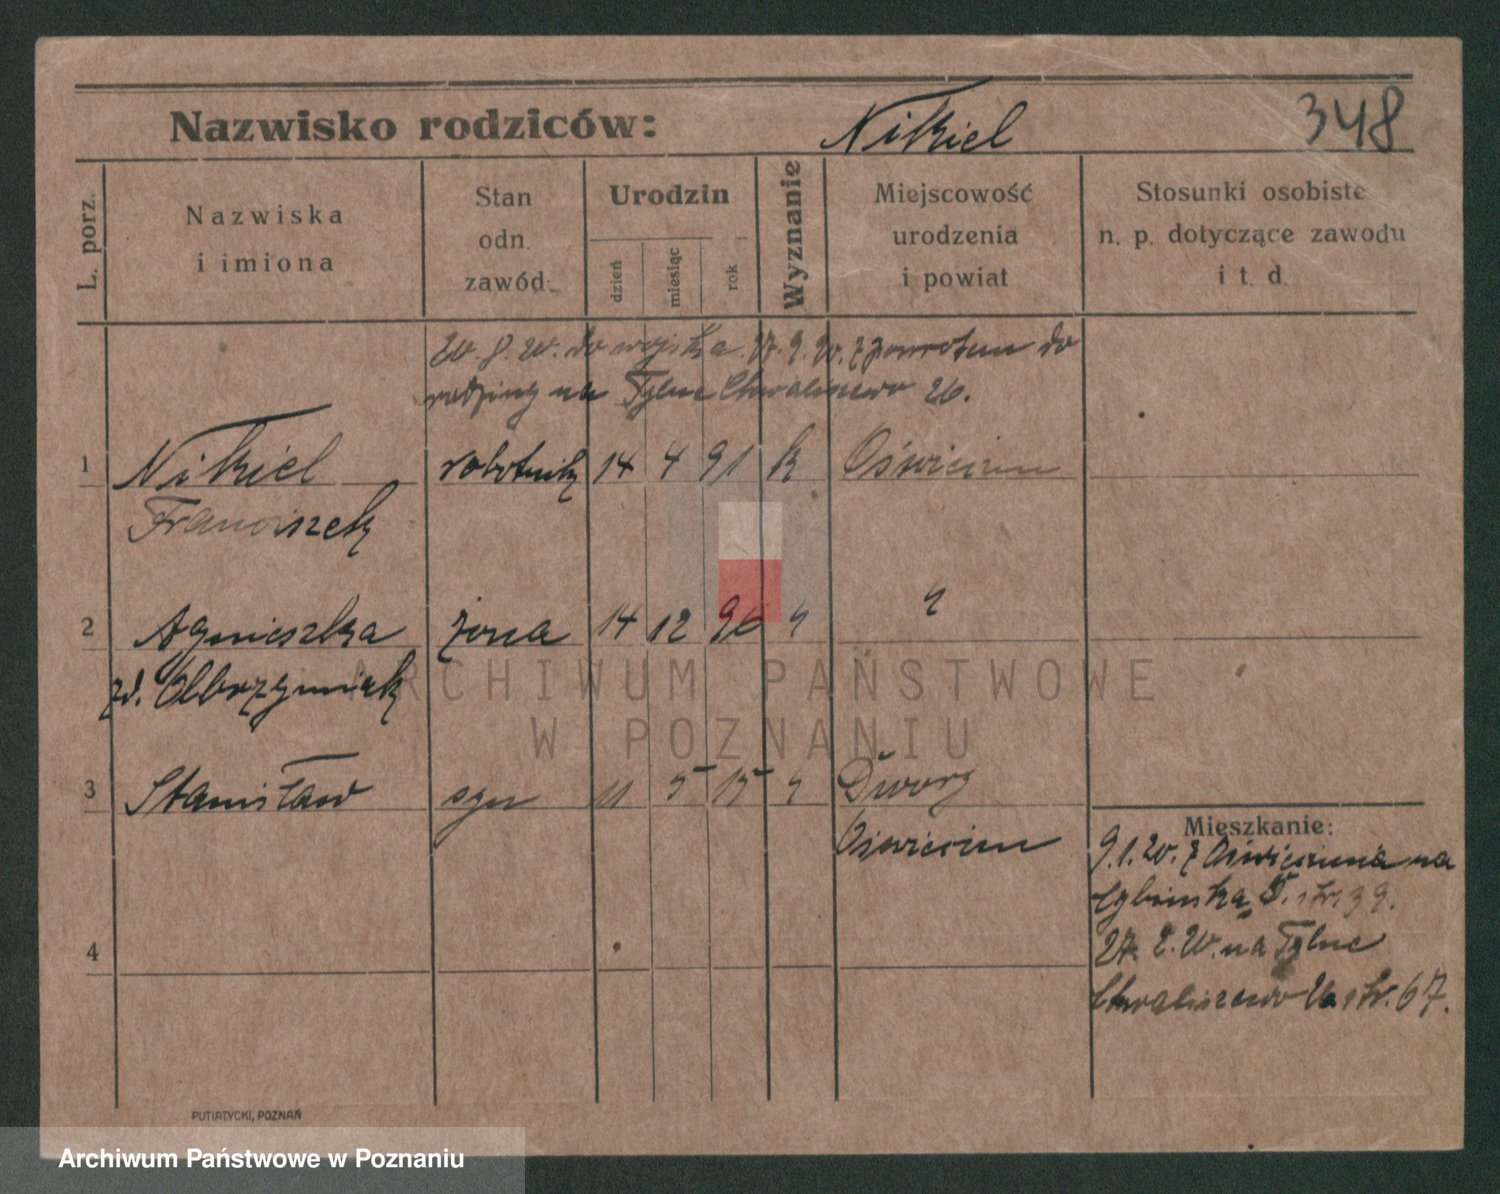 Nazwisko rodziców: Nikiel 348
L. porz.
Nazwiska
i imiona
Stan
odn.
zawód
Urodzin
dzień
miesiąc
rok
Wyznanie
Miejscowość
urodzenia
i powiat
Stosunki osobiste
n. p. dotyczące zawodu
i t. d.
20. 8. 20. do wojska. 27. 9. 20. z powrotem do
rodziny na Tylne Chwaliszewo 26.
1 Nikiel robotnik 14 4 91 k Oświęcim
Franciszek
2 Agnieszka żona 14 12 96 " "
zd. Olbrzymiak
3 Stanisław syn 11 5 15 " Dwory
Oświęcim
Mieszkanie:
9.1.20. z Oświęcimia na
Cybińską 5. str. 39.
27. 2. 20. na Tylne
Chwaliszewo 26 str. 67.
4
PUTIATYCKI, POZNAŃ
ARCHIWUM PAŃSTWOWE
W POZNANIU
Archiwum Państwowe w Poznaniu